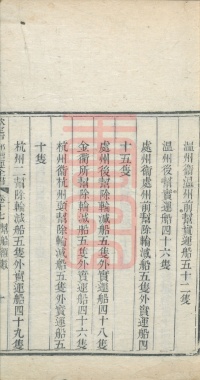 溫州衛溫州前幫實運船五十二隻
溫州後幫實運船四十六隻
處州衛處州前幫除輪減船五隻外實運船四
十五隻
處州後幫除輪減船五隻外實運船四十八隻
金衢所幫除輪減船五隻外實運船四十六隻
杭州衛杭州頭幫除輪減船五隻外實運船四
十隻
杭州二幫除輪減船五隻外實運船四十九隻